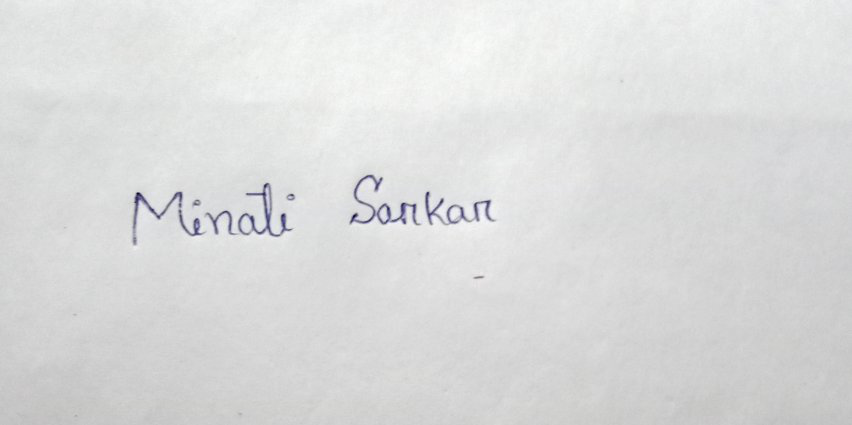 Minati Sarkar